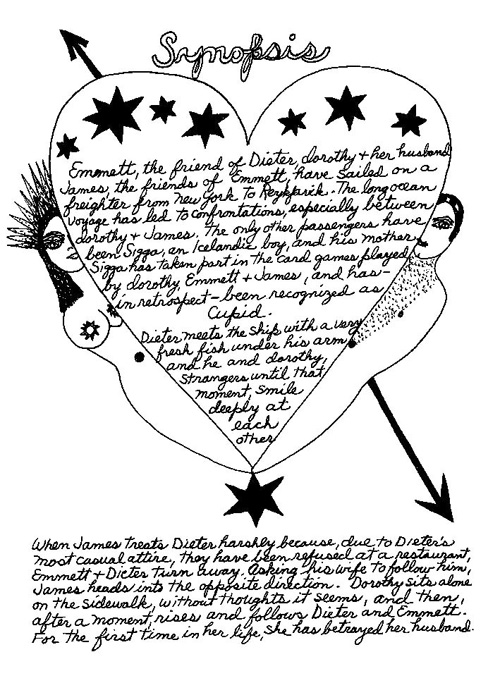 Synopsis
Emmett, the friend of Dieter, dorothy + her husband
James, the friends of Emmett, have sailed on a
freighter from New York to Reykjavik. The long ocean
voyage has led to confrontations, especially between
dorothy + James. The only other passengers have
been Sigga, an Icelandic boy, and his mother.
Sigga has taken part in the card games played
by dorothy, Emmett + James, and has-
in retrospect-been recognized as
Cupid.
Dieter meets the ship with a very
fresh fish under his arm
and he and dorothy,
strangers until that
moment, smile
deeply at
each
other
When James treats Dieter harshly because, due to Dieter's
most casual attire, they have been refused at a restaurant,
Emmett + Dieter turn away. Asking his wife to follow him,
James heads into the opposite direction. Dorothy sits alone
on the sidewalk, without thoughts it seems, and then,
after a moment, rises and follows Dieter and Emmett.
For the first time in her life, she has betrayed her husband.